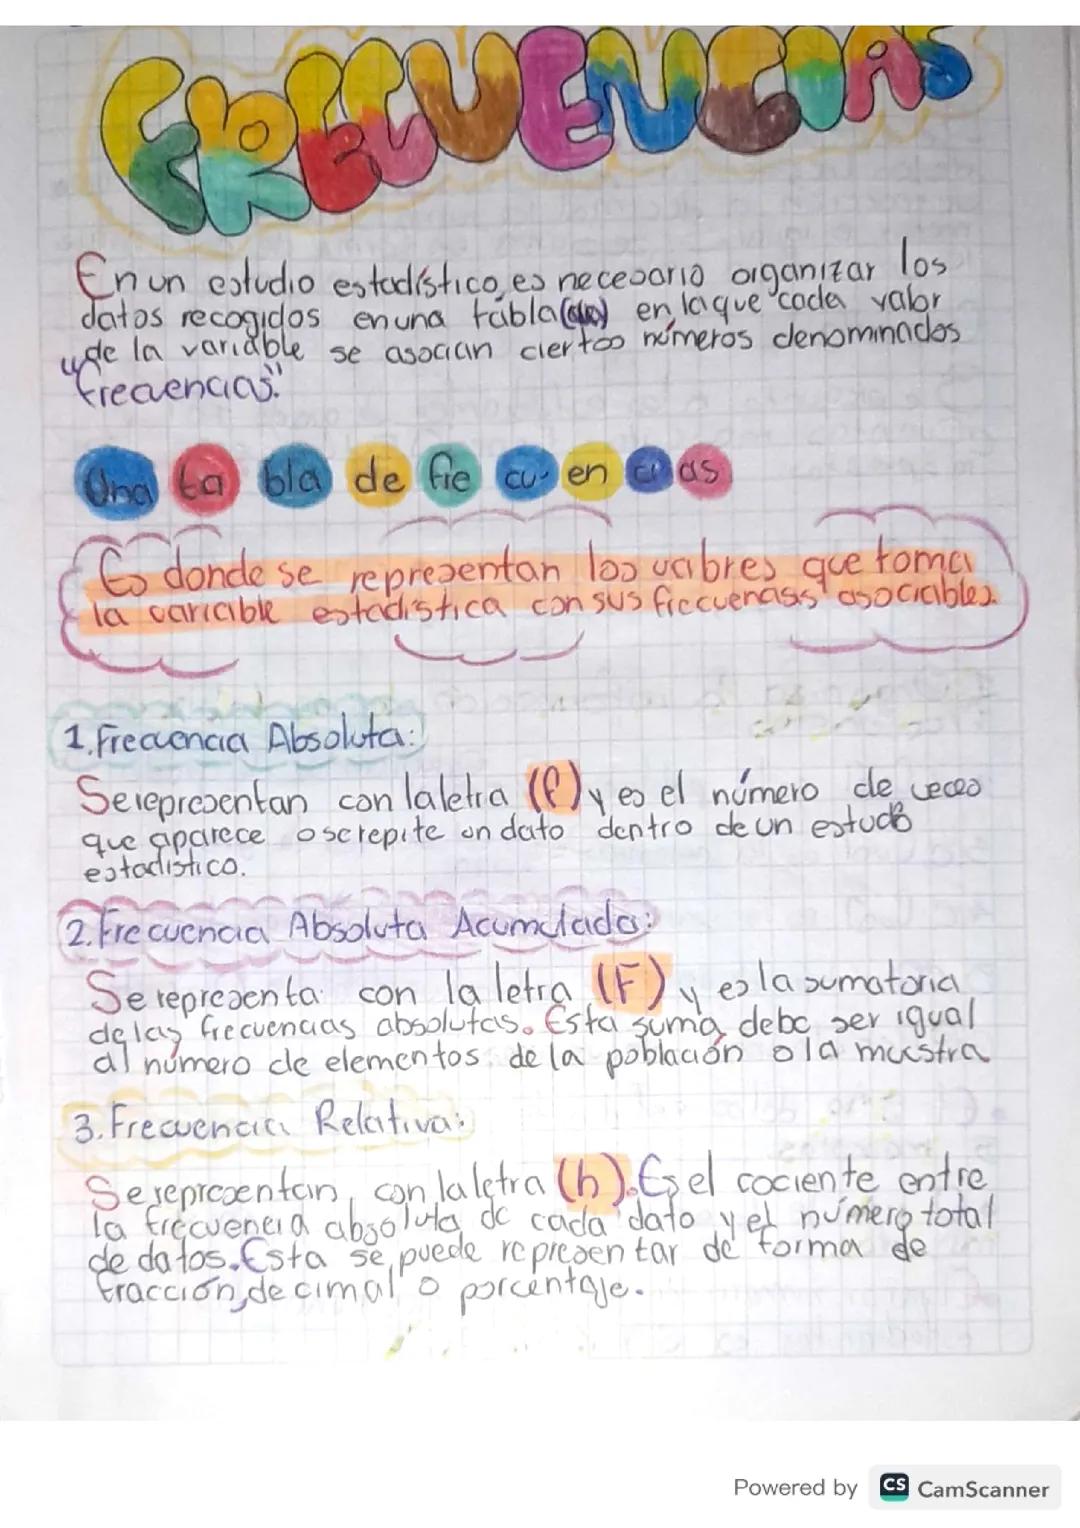 FRECUENCIAS
En un estudio estadístico, es necesario organizar los
datos recogidos en una tabla en la que cada valor
de la variable se asocian ciertos números denominados
"frecuencias."
Una ta bla de fre cu- en ci as
Es donde se representan los valores que toma
la variable estadística con sus freccuenciass asociables.
1. Frecuencia Absoluta:
Se representan con la letra (f) y es el número de veces
que aparece o se repite un dato dentro de un estudio
estadístico.
2. Frecuencia Absoluta Acumulada:
Se representa con la letra (F) y es la sumatoria
de las frecuencias absolutas. Esta suma debe ser igual
al número de elementos de la población o la muestra
3. Frecuencia Relativa:
Se representan, con la letra (h). Es el cociente entre
la frecuencia absoluta de cada dato y el número total
de datos. Esta se puede representar de forma de
fracción, decimal o porcentaje.
Powered by CS CamScanner